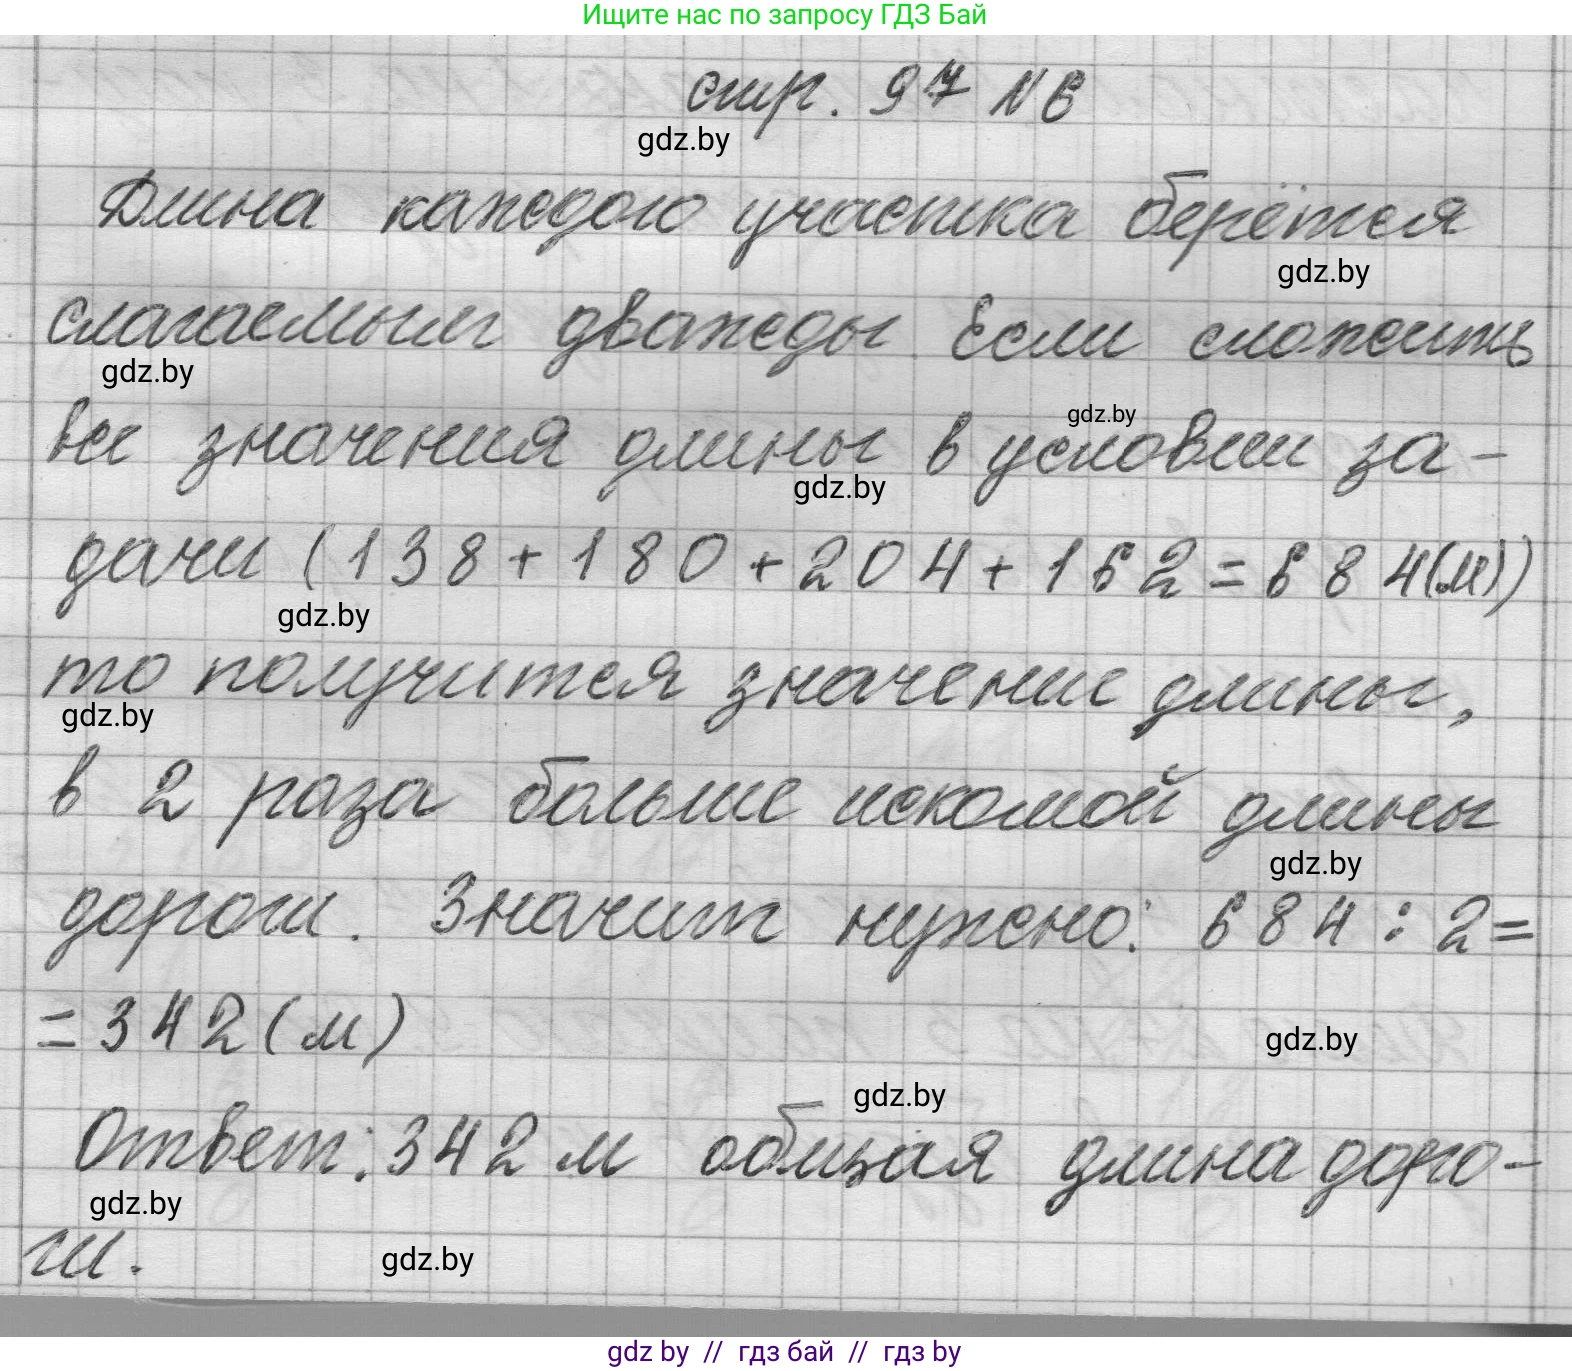 Ищите нас по запросу ГДЗ Бай
стр. 97 N 6
gdz.by
Длина каждого участка берётся
gdz.by
слагаемым дважды. Если сложить
gdz.by
все значения длины в условии за-
gdz.by
gdz.by
дачи (138+180+204+162=684(м))
gdz.by
то получится значение длины,
gdz.by
в 2 раза больше искомой длины
gdz.by
дороги. Значит нужно: 684:2=
=342(м)
gdz.by
gdz.by
Ответ: 342 м общая длина доро-
gdz.by
ги.
gdz.by
gdz.by // гдз бай // гдз by